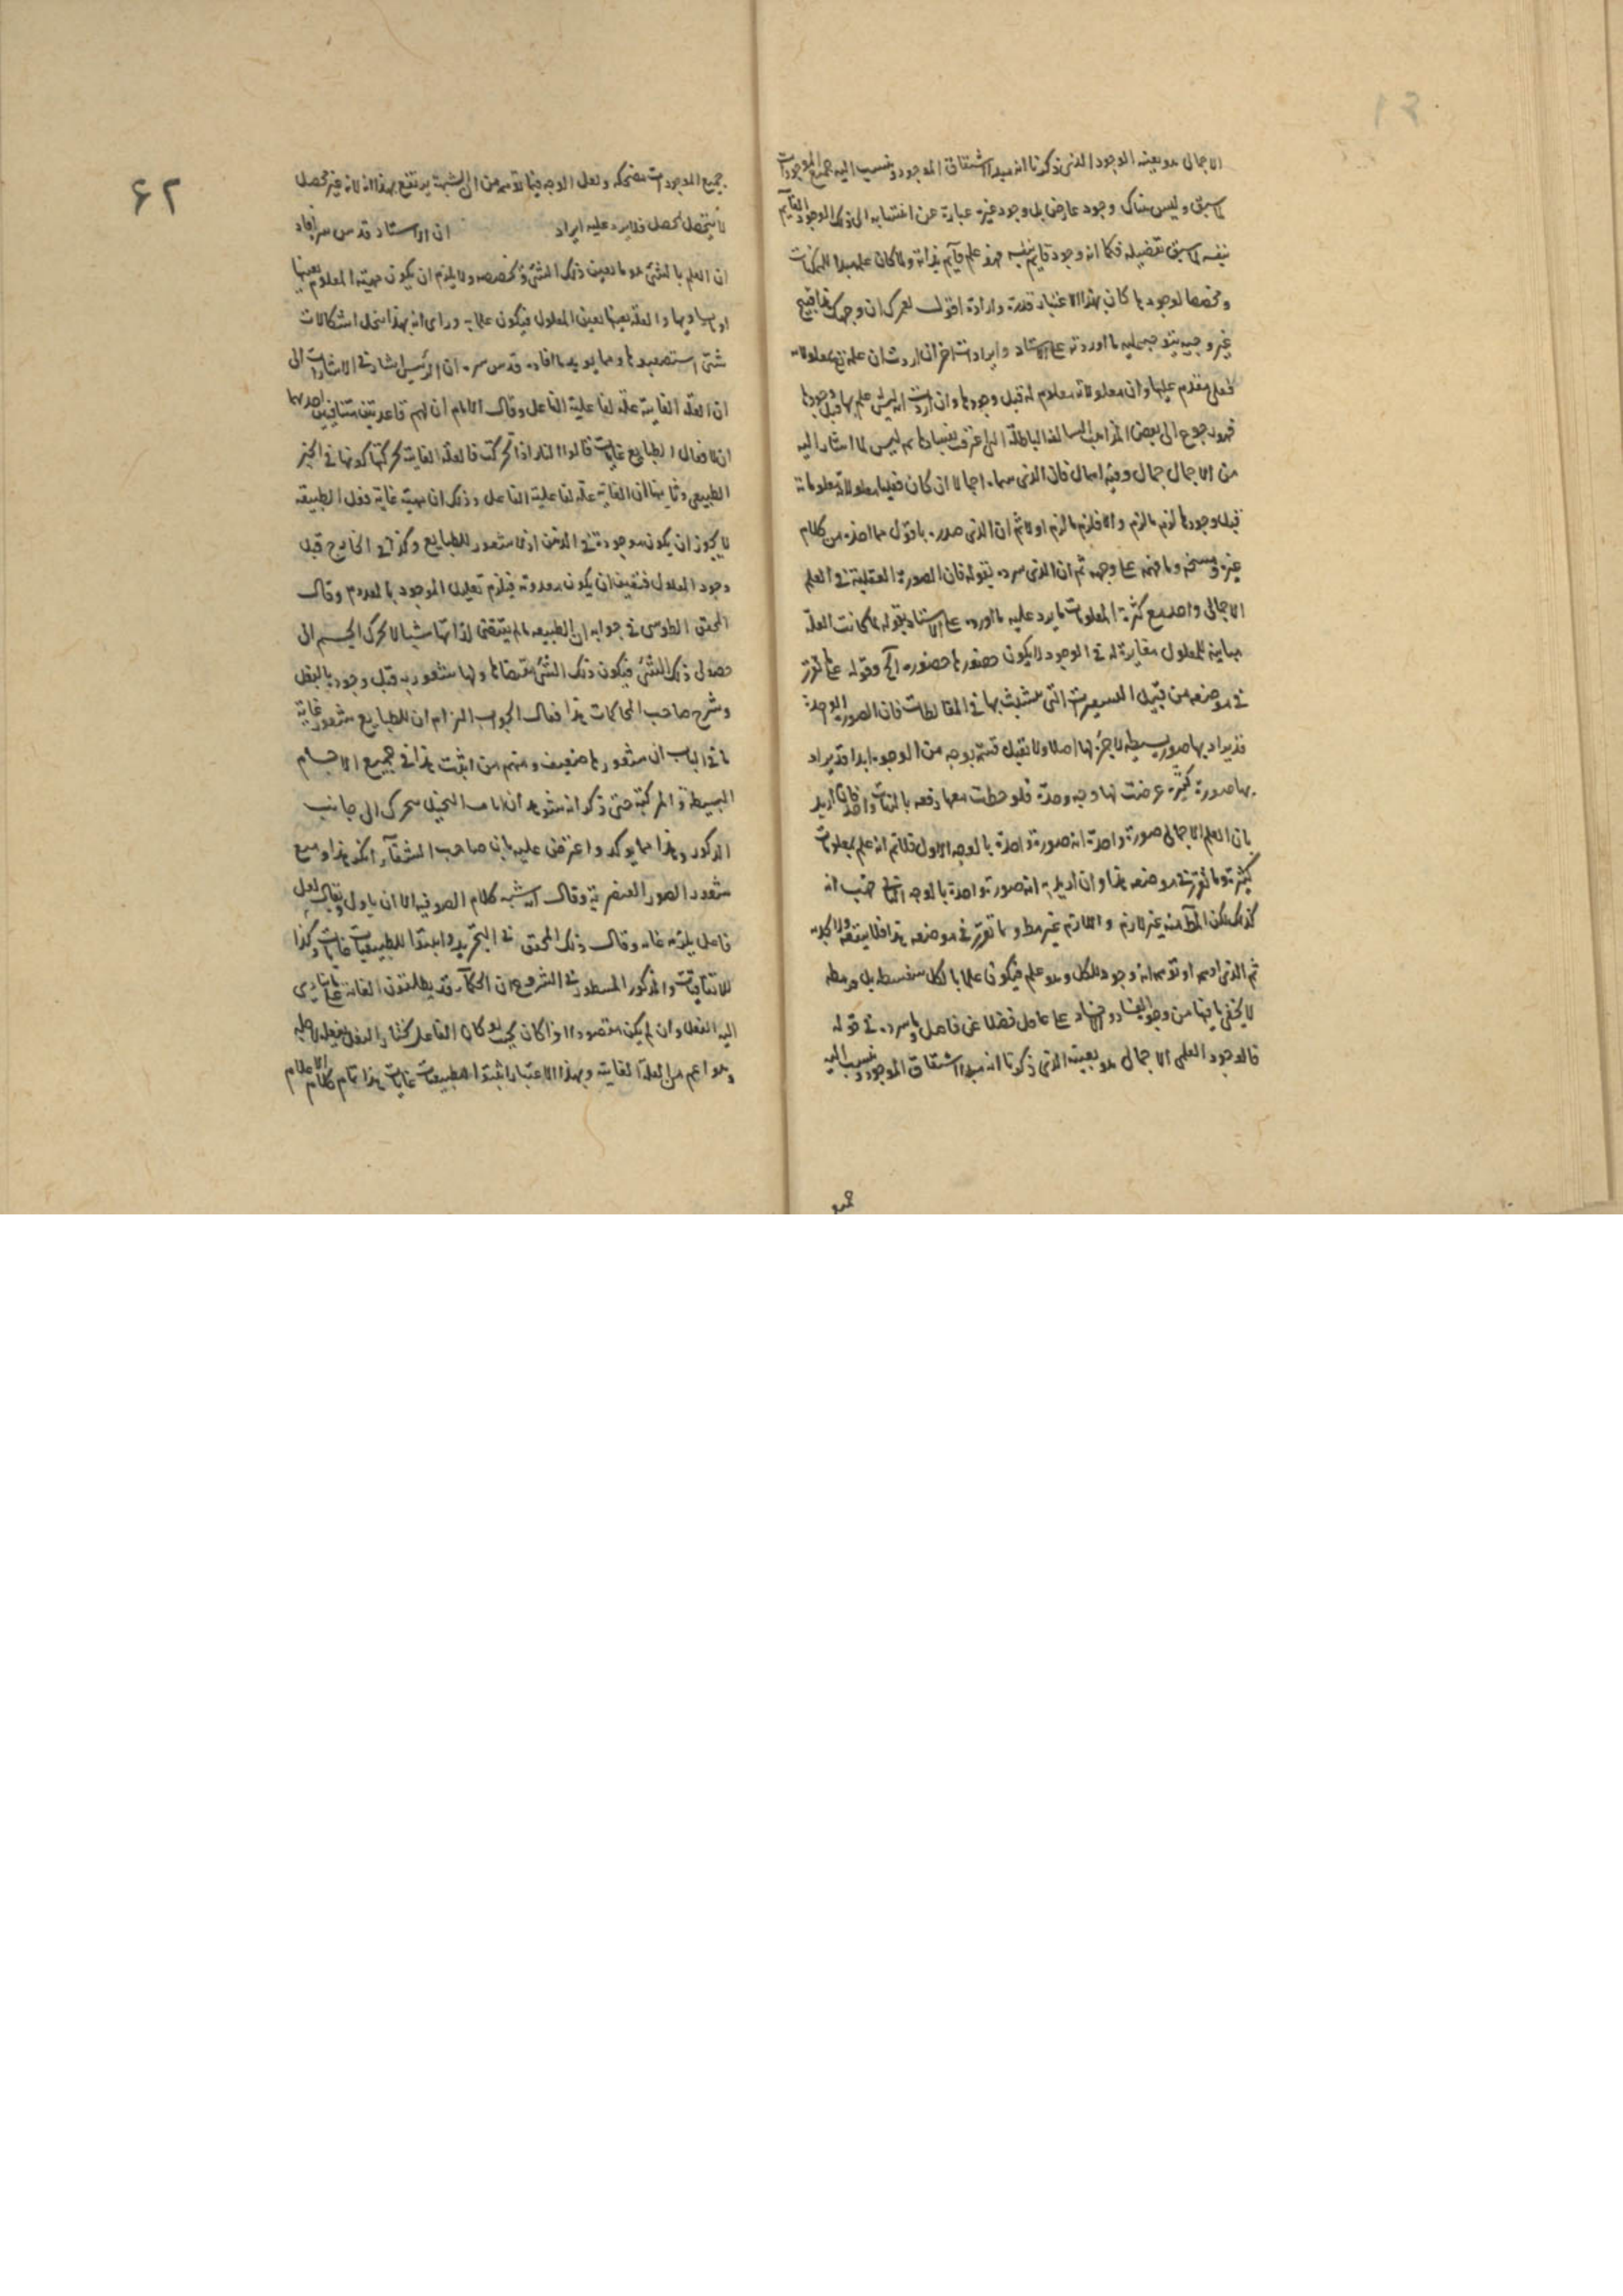 الاجمالى هو بعينه الوجود الذى ذكرنا انه مبدا اشتقاق الموجود وينسب اليه جميع الموجودات
كما سبق وليس هناك وجود عارض بل وجود غيره عبارة عن انتسابه الى ذلك الوجود القايم
بنفسه كما سبق تفصيله فكما انه وجود قايم بنفسه فهو علم قايم بذاته ولما كان علمه مبدا للممكنات
ومخصصا لوجودها كان بهذا الاعتبار قدرة وارادة اقول لعمرك ان وجهك هذا قبيح
غير وجيه يتوجه عليه ما اوردته على الاستاد وايرادات اخر ان اردت ان علمه بمعلولاته
فعلى مقدم عليها وان معلولاته معلوم له قبل وجودها وان اردت انه ليس علم بها قبل وجودها
فهو رجوع الى بعض المذاهب السالفة الباطلة التى اعترف بفسادها ثم ليس لما اشار اليه
من الاجمال جمال وفيه اهمال فان الذى سماه اجمالا ان كان فعليا معلولاته معلوماته
قبل وجودها لزم ما لزم والا فلزم ما لزم اولا ثم ان الذى صدره باقول مما اخذه من كلام
غيره ومسخه وما فهمه على وجهه ثم ان الذى سرده بقوله فان الصورة العقلية فى العلم
الاجمالى واحد مع كثرة المعلومات ما يرد عليه ما اورده على الاستاد بقوله لما كانت العلة
مباينة للمعلول مغايرة له فى الوجود لا يكون حضورها حضوره الخ وقوله على ما تقرر
فى موضعه من قبيل التى يتشبث بها فى المغالطات فان الصور الواحدة
قد يراد بها صور بسيطة لا جزء لها اصلا ولا تقبل قسمة بوجه من الوجوه ابدا وقد يراد
بها صورة كثيرة عرضت لها وجه وحدة فلو حظت معها دفعه بالتفات واحد فان اريد
بان العلم الاجمالى صورة واحدة انه صورة واحدة بالوجه الاول فلا نم انه علم بمعلومات
كثيرة وما تقرر فى موضعه هذا وان اريد به انه صورة واحدة بالوجه الثانى فهب انه
كذلك لكن المط منه غير لازم واللازم غير مط وما تقرر فى موضعه هذا فلا ينفعه ولا يجديه
ثم الذى اوهم او توهم انه وجود للكل وهو علم فيكون علما بالكل سفسطه بل مغلطه
لا يخفى ما فيها من وجوه الفساد والفساد على عاقل فضلا عن فاضل وما سرده فى قوله
فالوجود العلمى الاجمالى هو بعينه الذى ذكرنا انه مبدا اشتقاق الموجود وينسب اليه
جميع
٦٢
جميع الموجودات مضحكه ولعل الوجه فيما توهمه من ان الشبهة يرتفع بهذا انه لانه غير محصل
لا يتحصل لمحصل فلا يرد عليه ايراد ان الاستاد قدس سره افاد
ان العلم بالشئ هو ما يعين ذلك الشئ ويخصصه ولا يلزم ان يكون مهية المعلوم بعينها
او يساويها والعلة بعينها يعين المعلول فيكون علما به وراى انه بهذا ينحل اشكالات
شتى استصعبوها ومما يؤيد ما افاده قدس سره ان الرئيس اشار فى الاشارات الى
ان العلة الغايية علة لفاعلية الفاعل وقال الامام ان لهم قاعدتين متنافيتين احديهما
ان لافعال الطبايع غايات قالوا النار اذا تحركت فالعلة الغايية لحركتها كونها فى الحيز
الطبيعى وثانيهما ان الغاية علة لفاعلية الفاعل وذلك ان مهية غاية فعل الطبيعة
لا يجوز ان يكون موجودة فى الذهن اذ لا شعور للطبايع وكذا فى الخارج قبل
وجود المعلول فتعين ان يكون معدومة فيلزم تعليل الموجود بالمعدوم وقال
المحقق الطوسى فى جوابه ان الطبيعة ما لم يقتضى لذاتها شيئا لا يحرك الجسم الى
حصول ذلك الشئ فيكون ذلك الشئ مقتضاها ولها شعور به قبل وجوده بالفعل
وشرح صاحب المحاكمات هذا فقال الجواب التزام ان للطبايع شعور غاية
ما فى الباب ان شعورها ضعيف ومنهم من اثبت هذا فى جميع الاجسام
البسيطة والمركبة حتى ذكر انه شوهد ان اناث النخيل يتحرك الى جانب
الذكور وهذا مما يؤكد واعترض عليه بان صاحب الشفا انكر هذا ومنع
شعور الصور العنصرية وقال انه يشبه كلام الصوفية الا ان ياول ويقال لعل
فاضل يلزمه غاية وقال ذلك المحقق فى التجريد واثبتوا للطبيعيات غايات وكذا
للاتفاقيات والمذكور المسطور فى الشروح ان الحكماء قد يطلقون الغاية على ما يتادى
اليه الفعل وان لم يكن مقصودا اذا كان بحيث لو كان الفاعل مختارا لفعل الفعل لاجله
وهو اعم من العلة الغايية وبهذا الاعتبار اثبتوا للطبيعيات غايات هذا تمام كلام الاعلام